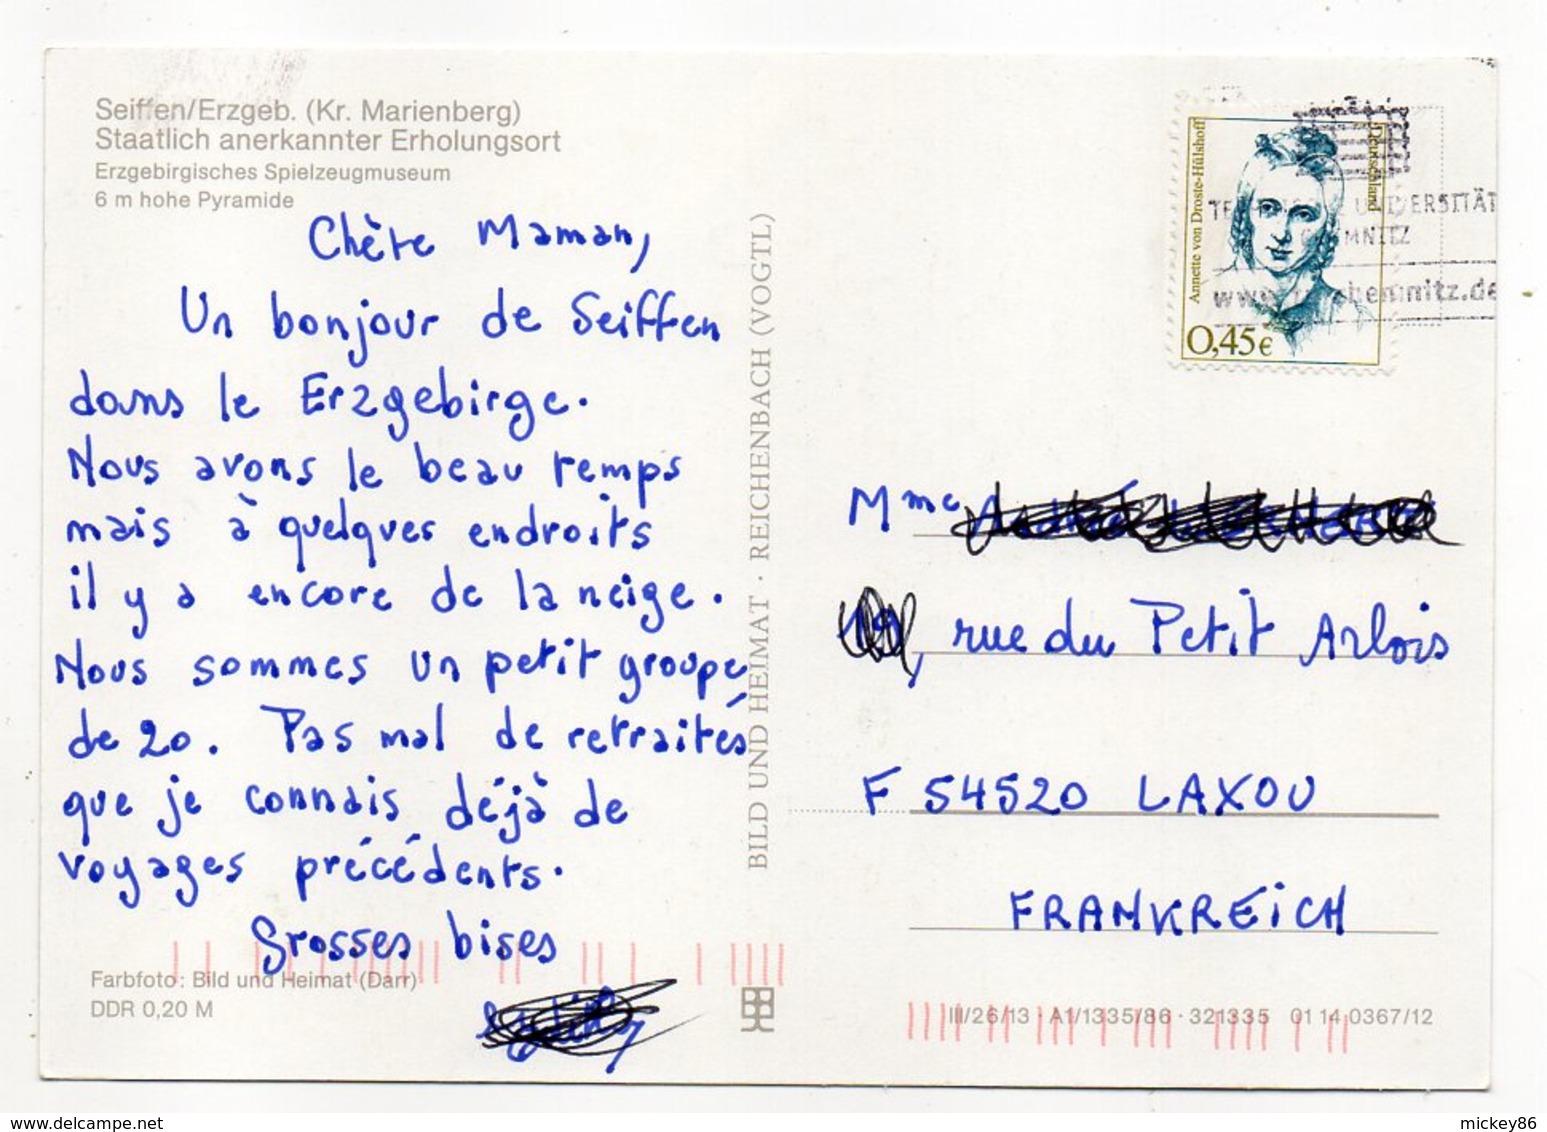 Seiffen/Erzgeb. (Kr. Marienberg)
Staatlich anerkannter Erholungsort
Erzgebirgisches Spielzeugmuseum
6 m hohe Pyramide
Chère Maman,
Un bonjour de Seiffen
dans le Erzgebirge.
Nous avons le beau temps
mais à quelques endroits
il y a encore de la neige.
Nous sommes un petit groupe
de 20. Pas mal de retraités
que je connais déjà de
voyages précédents.
Grosses bises
Farbfoto: Bild und Heimat (Darr)
DDR 0,20 M
BILD UND HEIMAT · REICHENBACH (VOGTL)
Annette von Droste-Hülshoff
Deutschland
0,45€
UNIVERSITÄT
CHEMNITZ
chemnitz.de
Mme
, rue du Petit Arlois
F 54520 LAXOU
FRANKREICH
III/26/13 · A1/1335/86 · 321335 01 14 0367/12
delcampe.net
mickey86